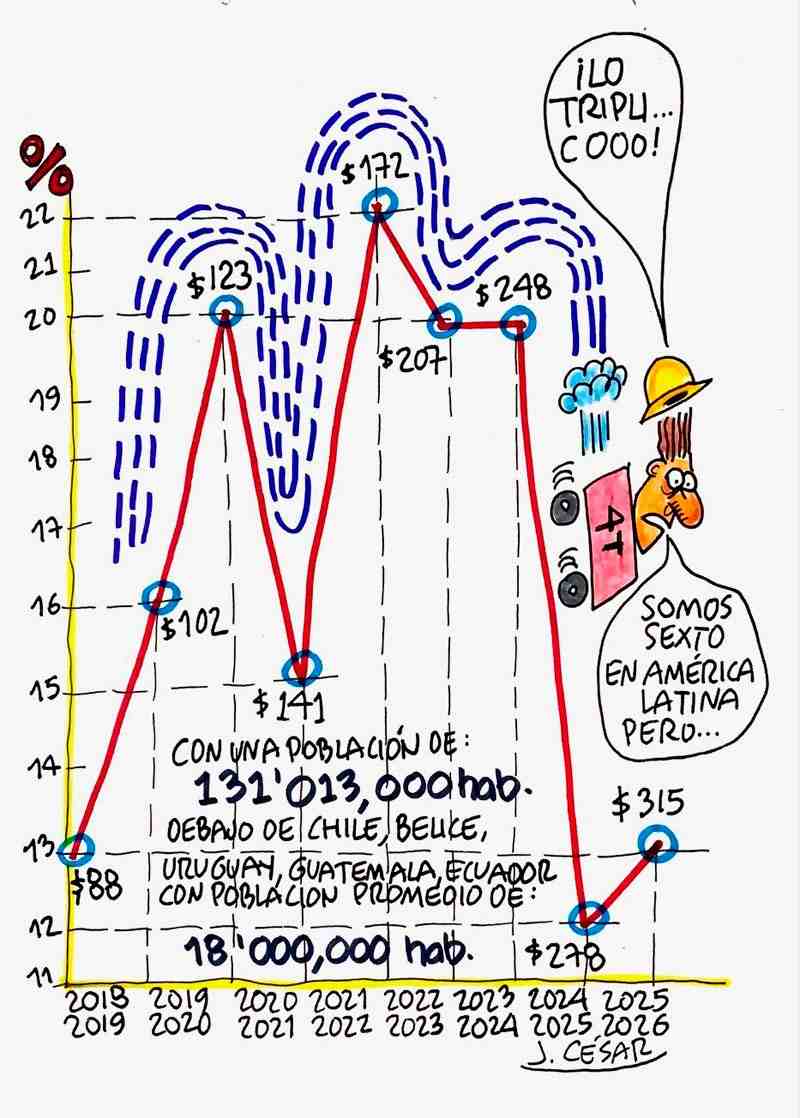 ¡LO
TRIPLI...
COOO!
%
$172
22
21
$123
$248
20
$207
19
18
17
4T
16
$102
SOMOS
SEXTO
EN AMÉRICA
LATINA
PERO...
15
$141
CON UNA POBLACIÓN DE:
14
131'013,000 hab.
$315
DEBAJO DE CHILE, BELICE,
13
URUGUAY, GUATEMALA, ECUADOR
$88
CON POBLACIÓN PROMEDIO DE:
12
18'000,000 hab.
$278
11
2018 2019 2020 2021 2022 2023 2024 2025
2019 2020 2021 2022 2023 2024 2025 2026
J. CÉSAR